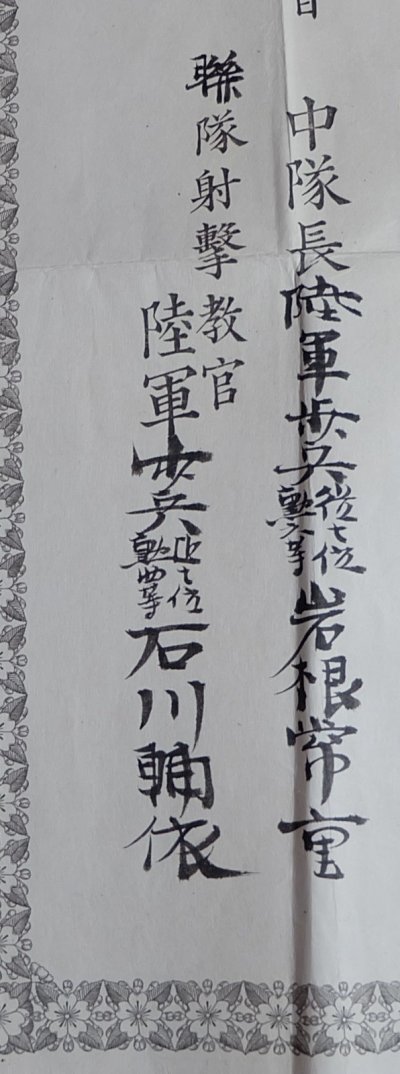 日
中隊長陸軍歩兵
従七位
勲六等
岩根常重
聯隊射撃教官
陸軍歩兵
正七位
勲四等
石川輔依